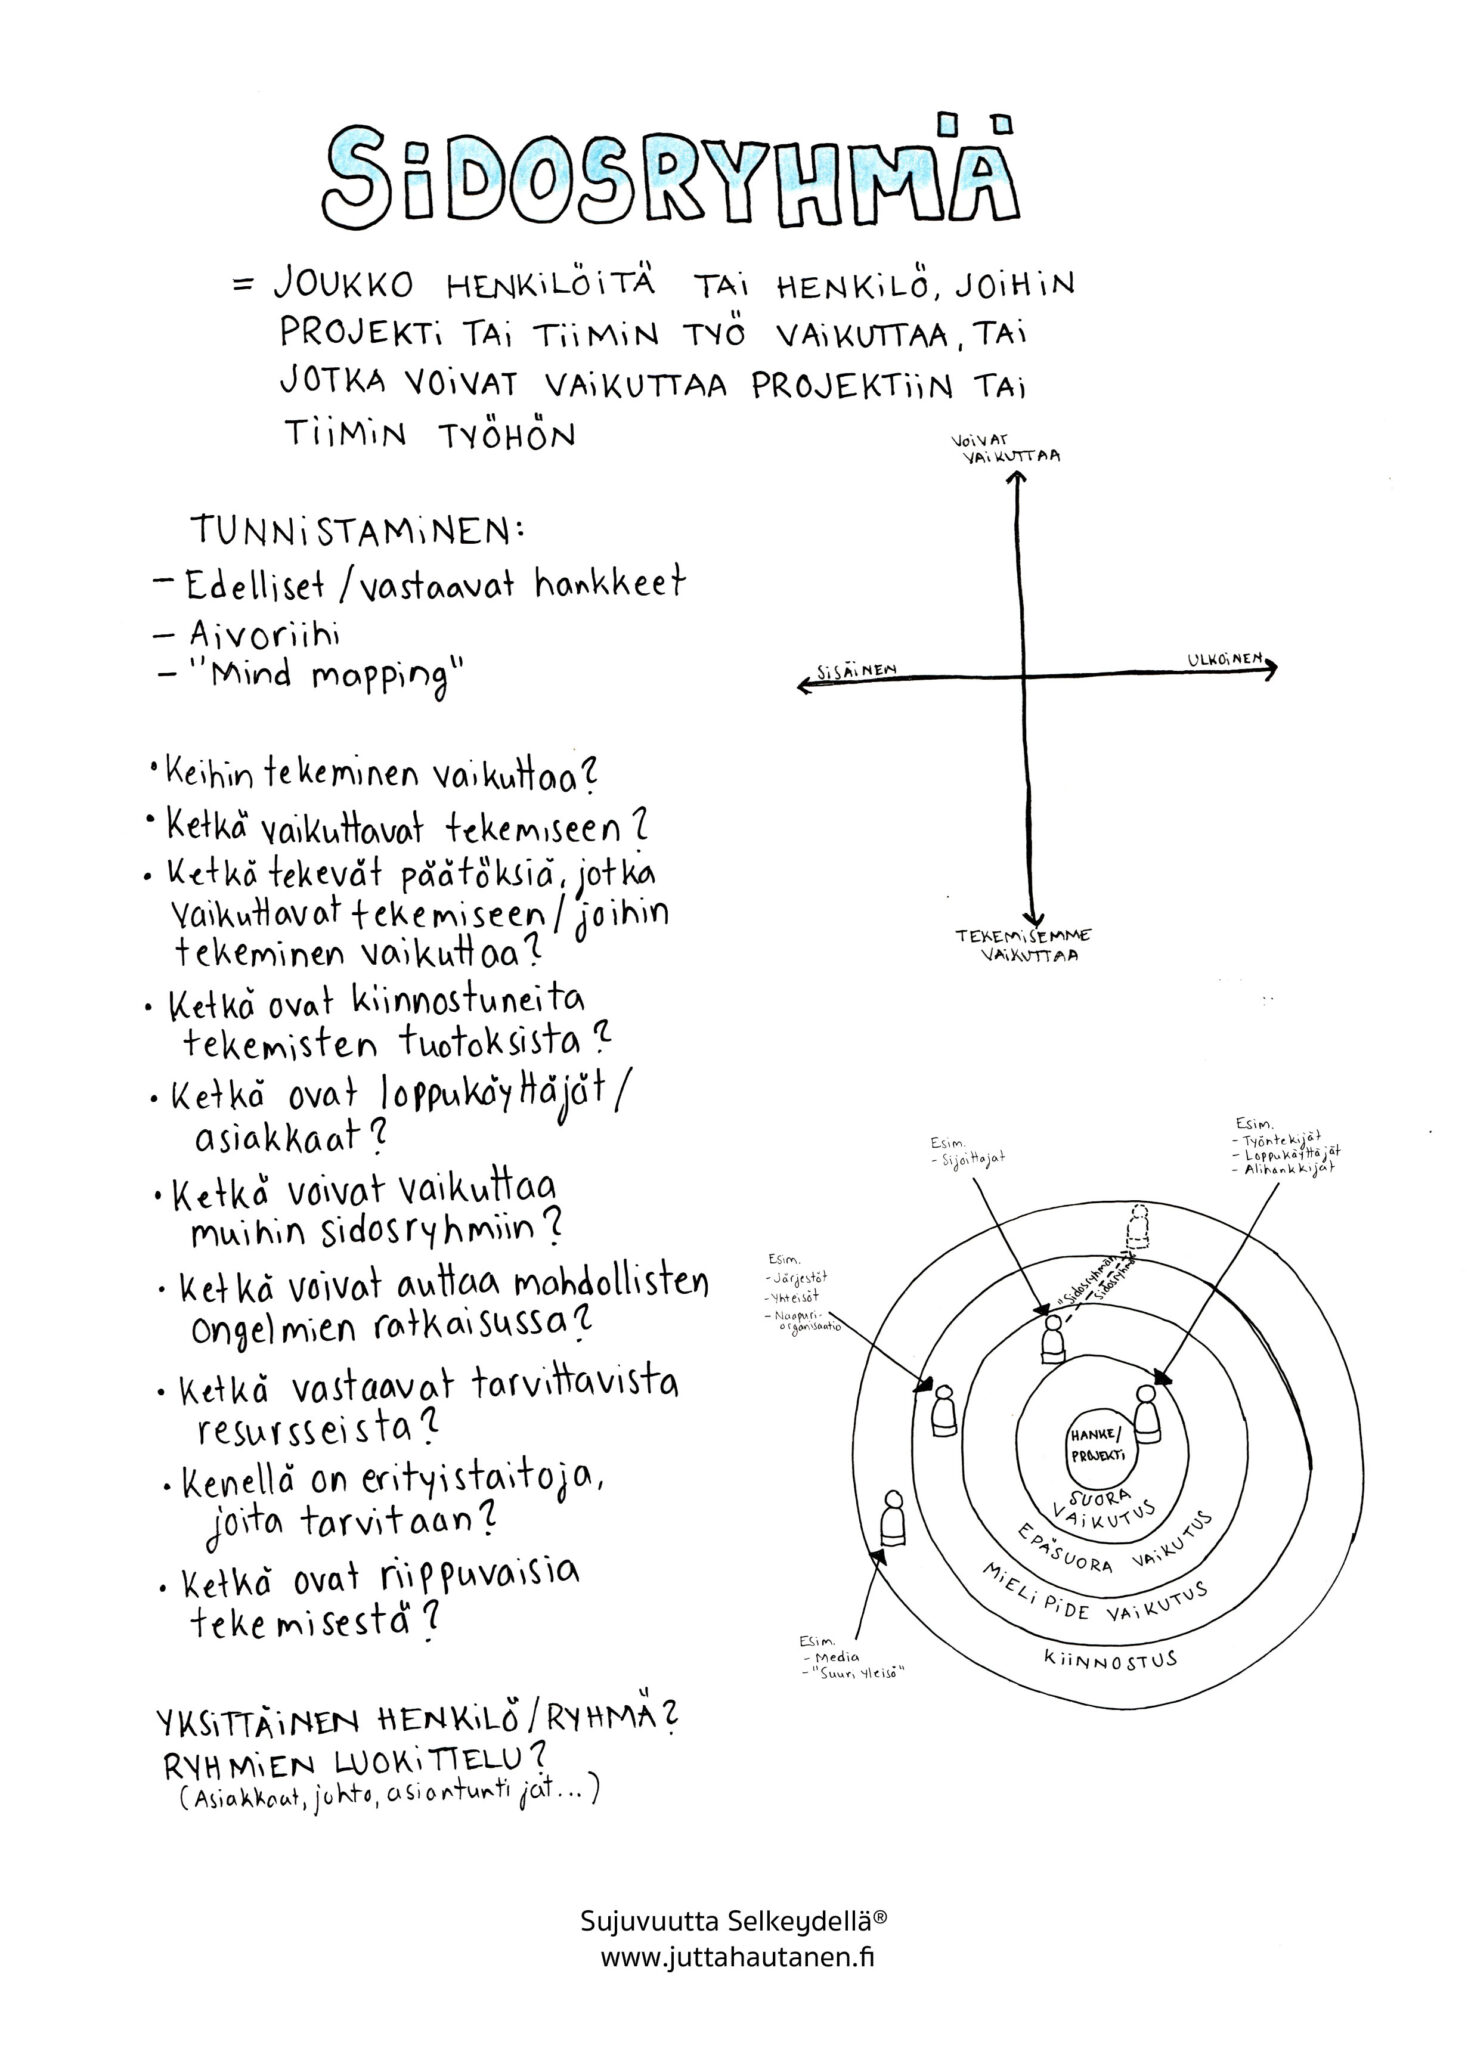 SIDOSRYHMÄ
= JOUKKO HENKILÖITÄ TAI HENKILÖ, JOIHIN
PROJEKTI TAI TIIMIN TYÖ VAIKUTTAA, TAI
JOTKA VOIVAT VAIKUTTAA PROJEKTIIN TAI
TIIMIN TYÖHÖN
VOIVAT
VAIKUTTAA
SISÄINEN
ULKOINEN
TEKEMISEMME
VAIKUTTAA
TUNNISTAMINEN:
- Edelliset / vastaavat hankkeet
- Aivoriihi
- "Mind mapping"
• Keihin tekeminen vaikuttaa?
• Ketkä vaikuttavat tekemiseen?
• Ketkä tekevät päätöksiä, jotka
vaikuttavat tekemiseen / joihin
tekeminen vaikuttaa?
• Ketkä ovat kiinnostuneita
tekemisten tuotoksista?
• Ketkä ovat loppukäyttäjät /
asiakkaat?
• Ketkä voivat vaikuttaa
muihin sidosryhmiin?
• Ketkä voivat auttaa mahdollisten
ongelmien ratkaisussa?
• Ketkä vastaavat tarvittavista
resursseista?
• Kenellä on erityistaitoja,
joita tarvitaan?
• Ketkä ovat riippuvaisia
tekemisestä?
YKSITTÄINEN HENKILÖ / RYHMÄ?
RYHMIEN LUOKITTELU?
(Asiakkaat, johto, asiantuntijat...)
Esim.
- Sijoittajat
Esim.
- Työntekijät
- Loppukäyttäjät
- Alihankkijat
Esim.
- Järjestöt
- Yhteisöt
- Naapuri-
organisaatio
"Sidosryhmän
sidosryhmä"
HANKE/
PROJEKTI
SUORA
VAIKUTUS
EPÄSUORA VAIKUTUS
MIELIPIDE VAIKUTUS
KIINNOSTUS
Esim.
- Media
- "Suuri yleisö"
Sujuvuutta Selkeydellä®
www.juttahautanen.fi